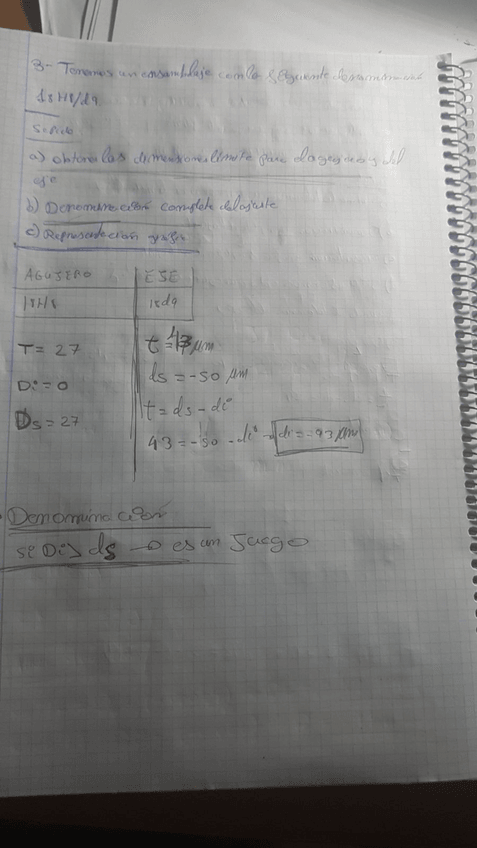 3- Tenemos un ensamblaje con la siguiente
18H8/d9
Se pide
a) obtener las dimensiones limite para el agujero y del
eje
b) Denominación completa del ajuste
c) Representación
AGUJERO EJE
18H8 18d9
T= 27 t=43 μm
Di=0 ds=-50 μm
Ds=27 t=ds-di
43=-50-di → di=-93 μm
Denominación
si Di>ds → es un Juego